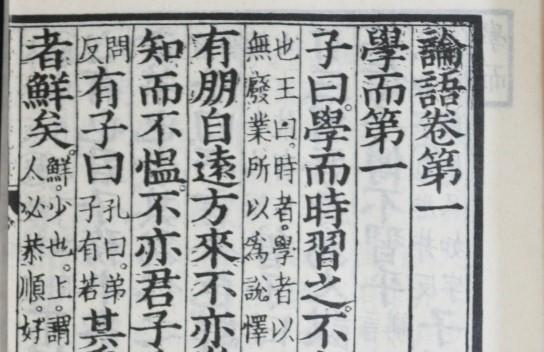 論語卷第一
學而第一
子曰。學而時習之。不
也王曰。時者。學者以
無廢業所以爲說懌
有朋自遠方來不亦
知而不愠。不亦君子
問
反
有子曰
孔曰。弟
子有若
其
者鮮矣。
鮮。少也。上。謂
人必恭順。好